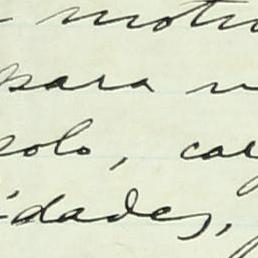 motiv
para
solo, ca
idades,